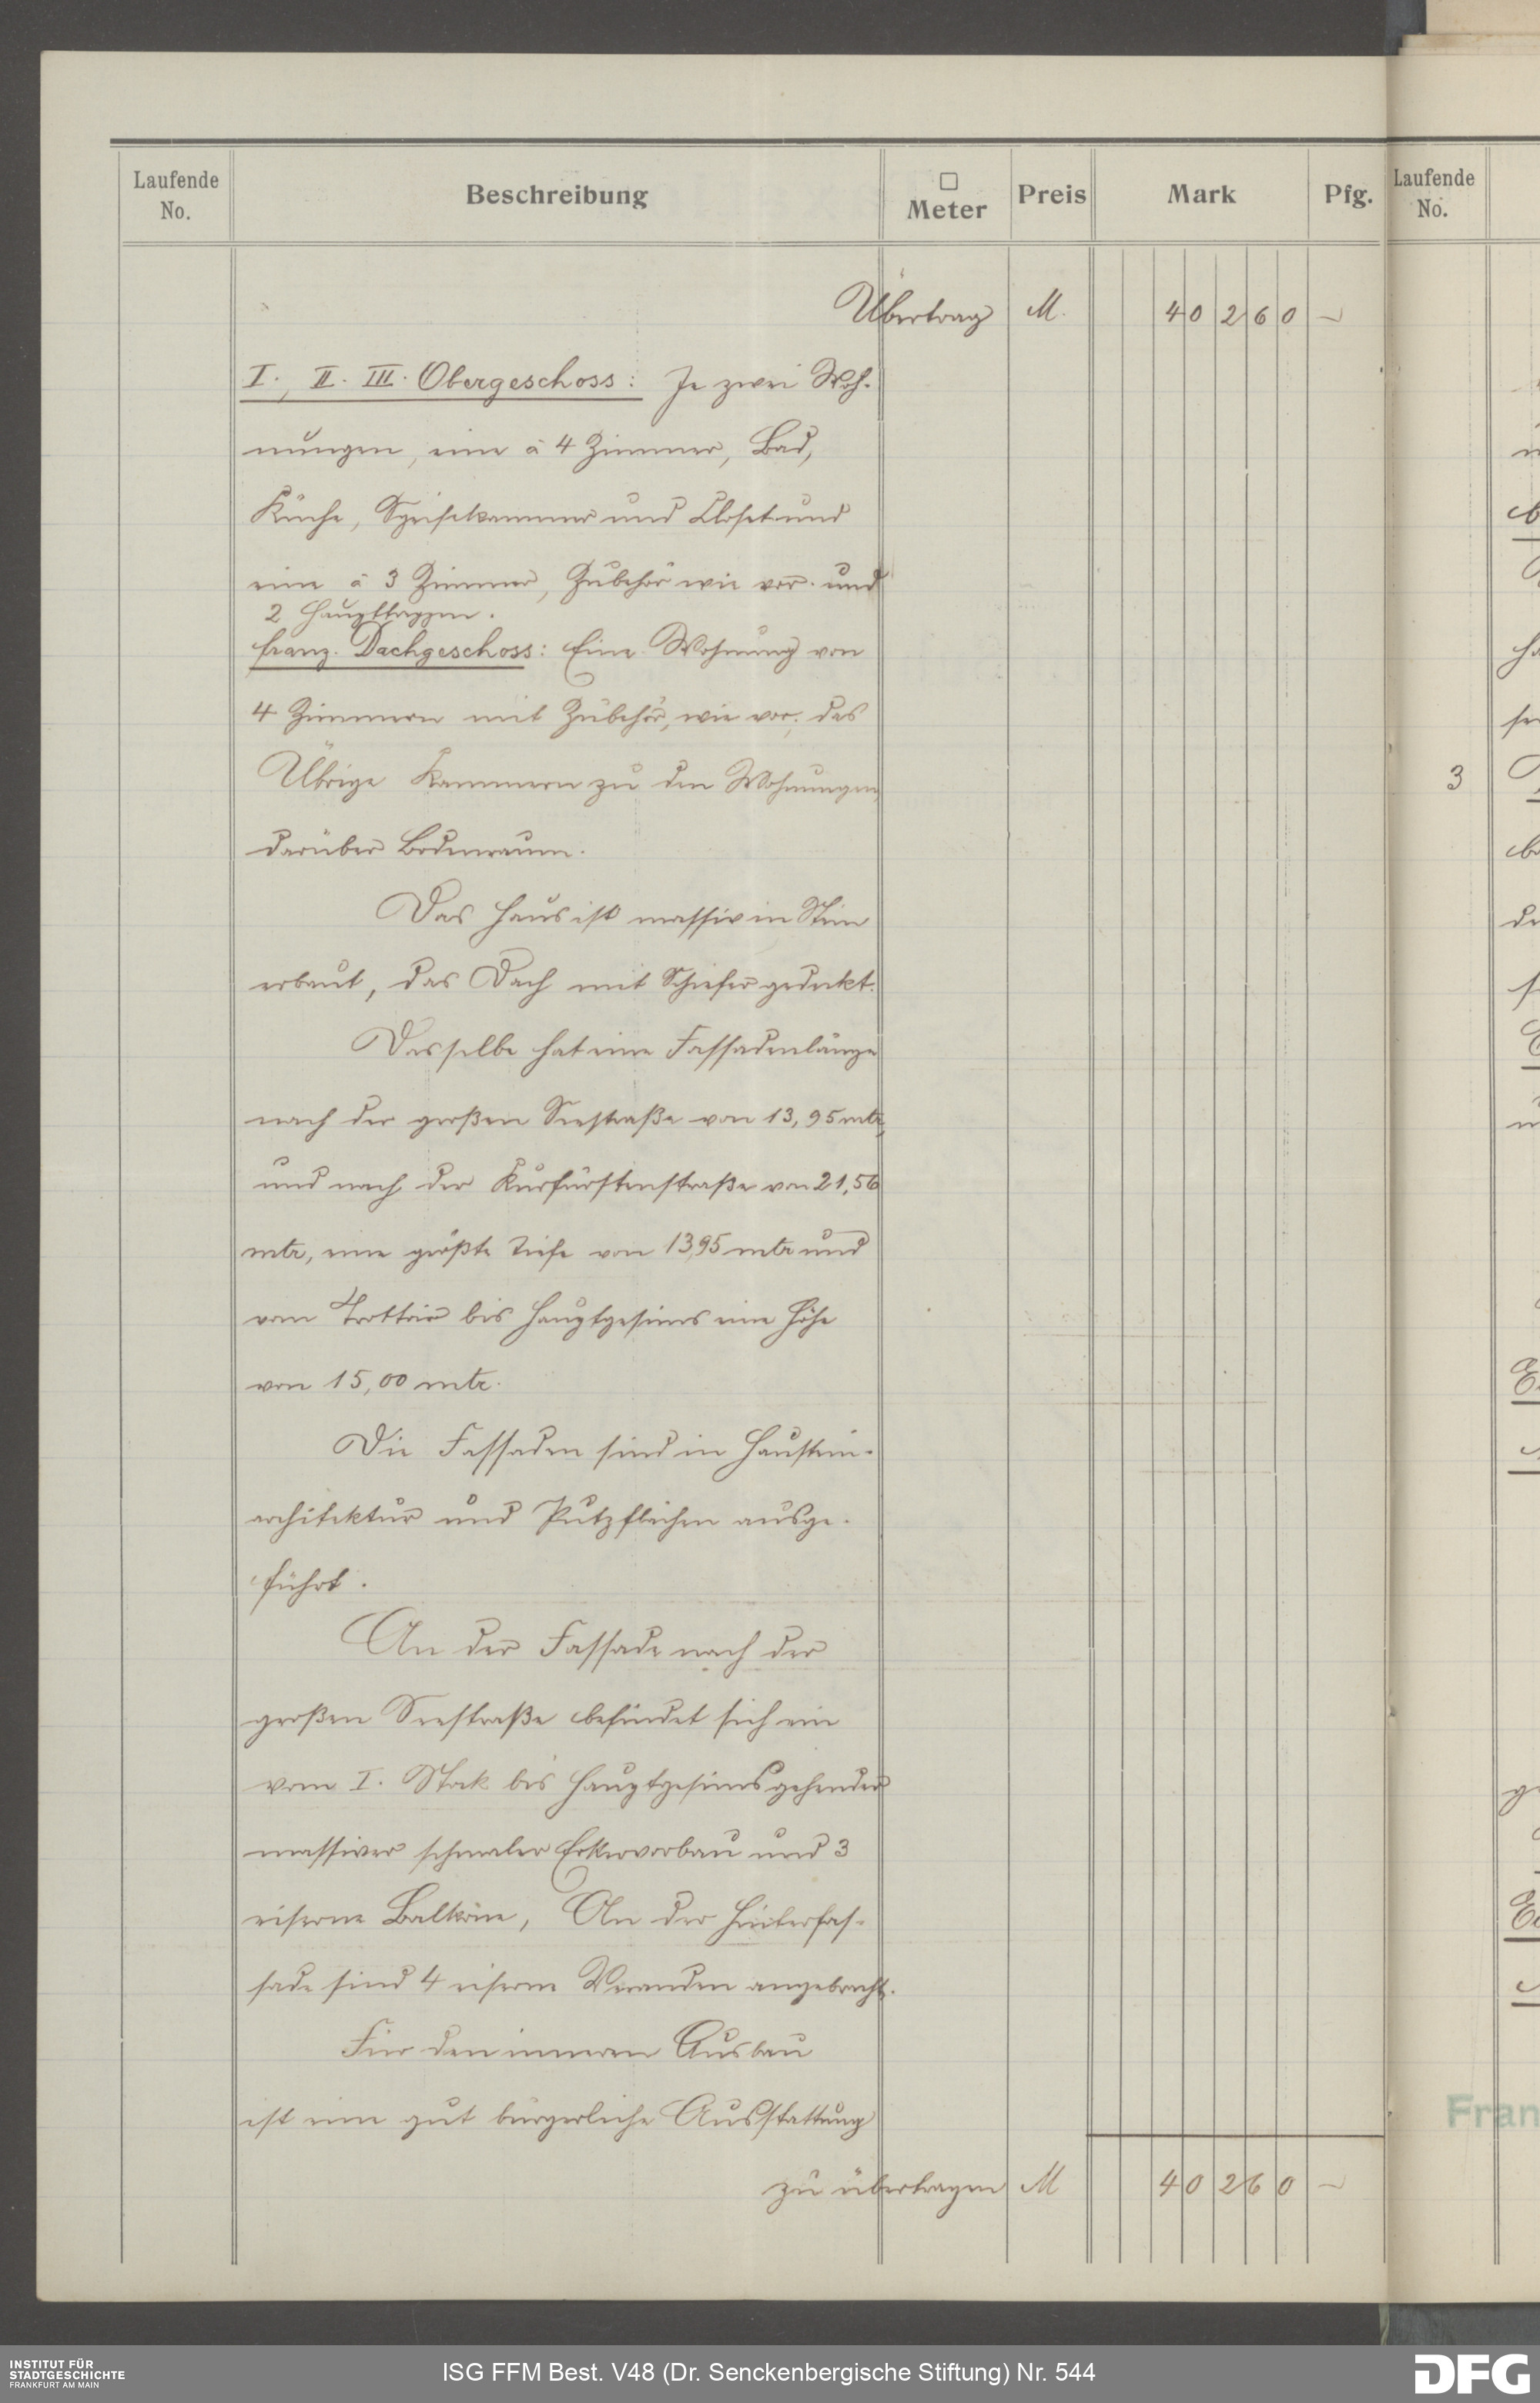 Laufende
No.
Beschreibung
□
Meter
Preis
Mark
Pfg.
Laufende
No.
Übertrag M. 40 260 –
I., II. III. Obergeschoss: Je zwei Woh-
nungen, eine à 4 Zimmer, Bad,
Küche, Speisekammer und Closet und
eine à 3 Zimmer, Zubehör wie vor. und
2 Haupttreppen.
franz. Dachgeschoss: Eine Wohnung von
4 Zimmern mit Zubehör, wie vor; das
Übrige Kammern zu den Wohnungen,
darüber Bodenraum.
Das Haus ist massiv in Stein
erbaut, das Dach mit Schiefer gedeckt.
Desselbe hat eine Fassadenlänge
nach der großen Seestraße von 13,95 mtr,
und nach der Kurfürstenstraße von 21,56
mtr, eine größte Tiefe von 13,95 mtr und
vom Trottoir bis Hauptgesims eine Höhe
von 15,00 mtr.
Die Fassaden sind in Haustein-
architektur und Putzflächen ausge-
führt.
An der Fassade nach der
großen Seestraße befindet sich ein
vom I. Stock bis Hauptgesims gehender
massiver schmaler Erkervorbau und 3
eiserne Balkône, An der Hinterfas-
sade sind 4 eiserne Veranden angebracht.
Für den inneren Ausbau
ist eine gut bürgerliche Ausstattung
zu übertragen M 40 260 –
3
Fran
INSTITUT FÜR
STADTGESCHICHTE
FRANKFURT AM MAIN
ISG FFM Best. V48 (Dr. Senckenbergische Stiftung) Nr. 544
DFG